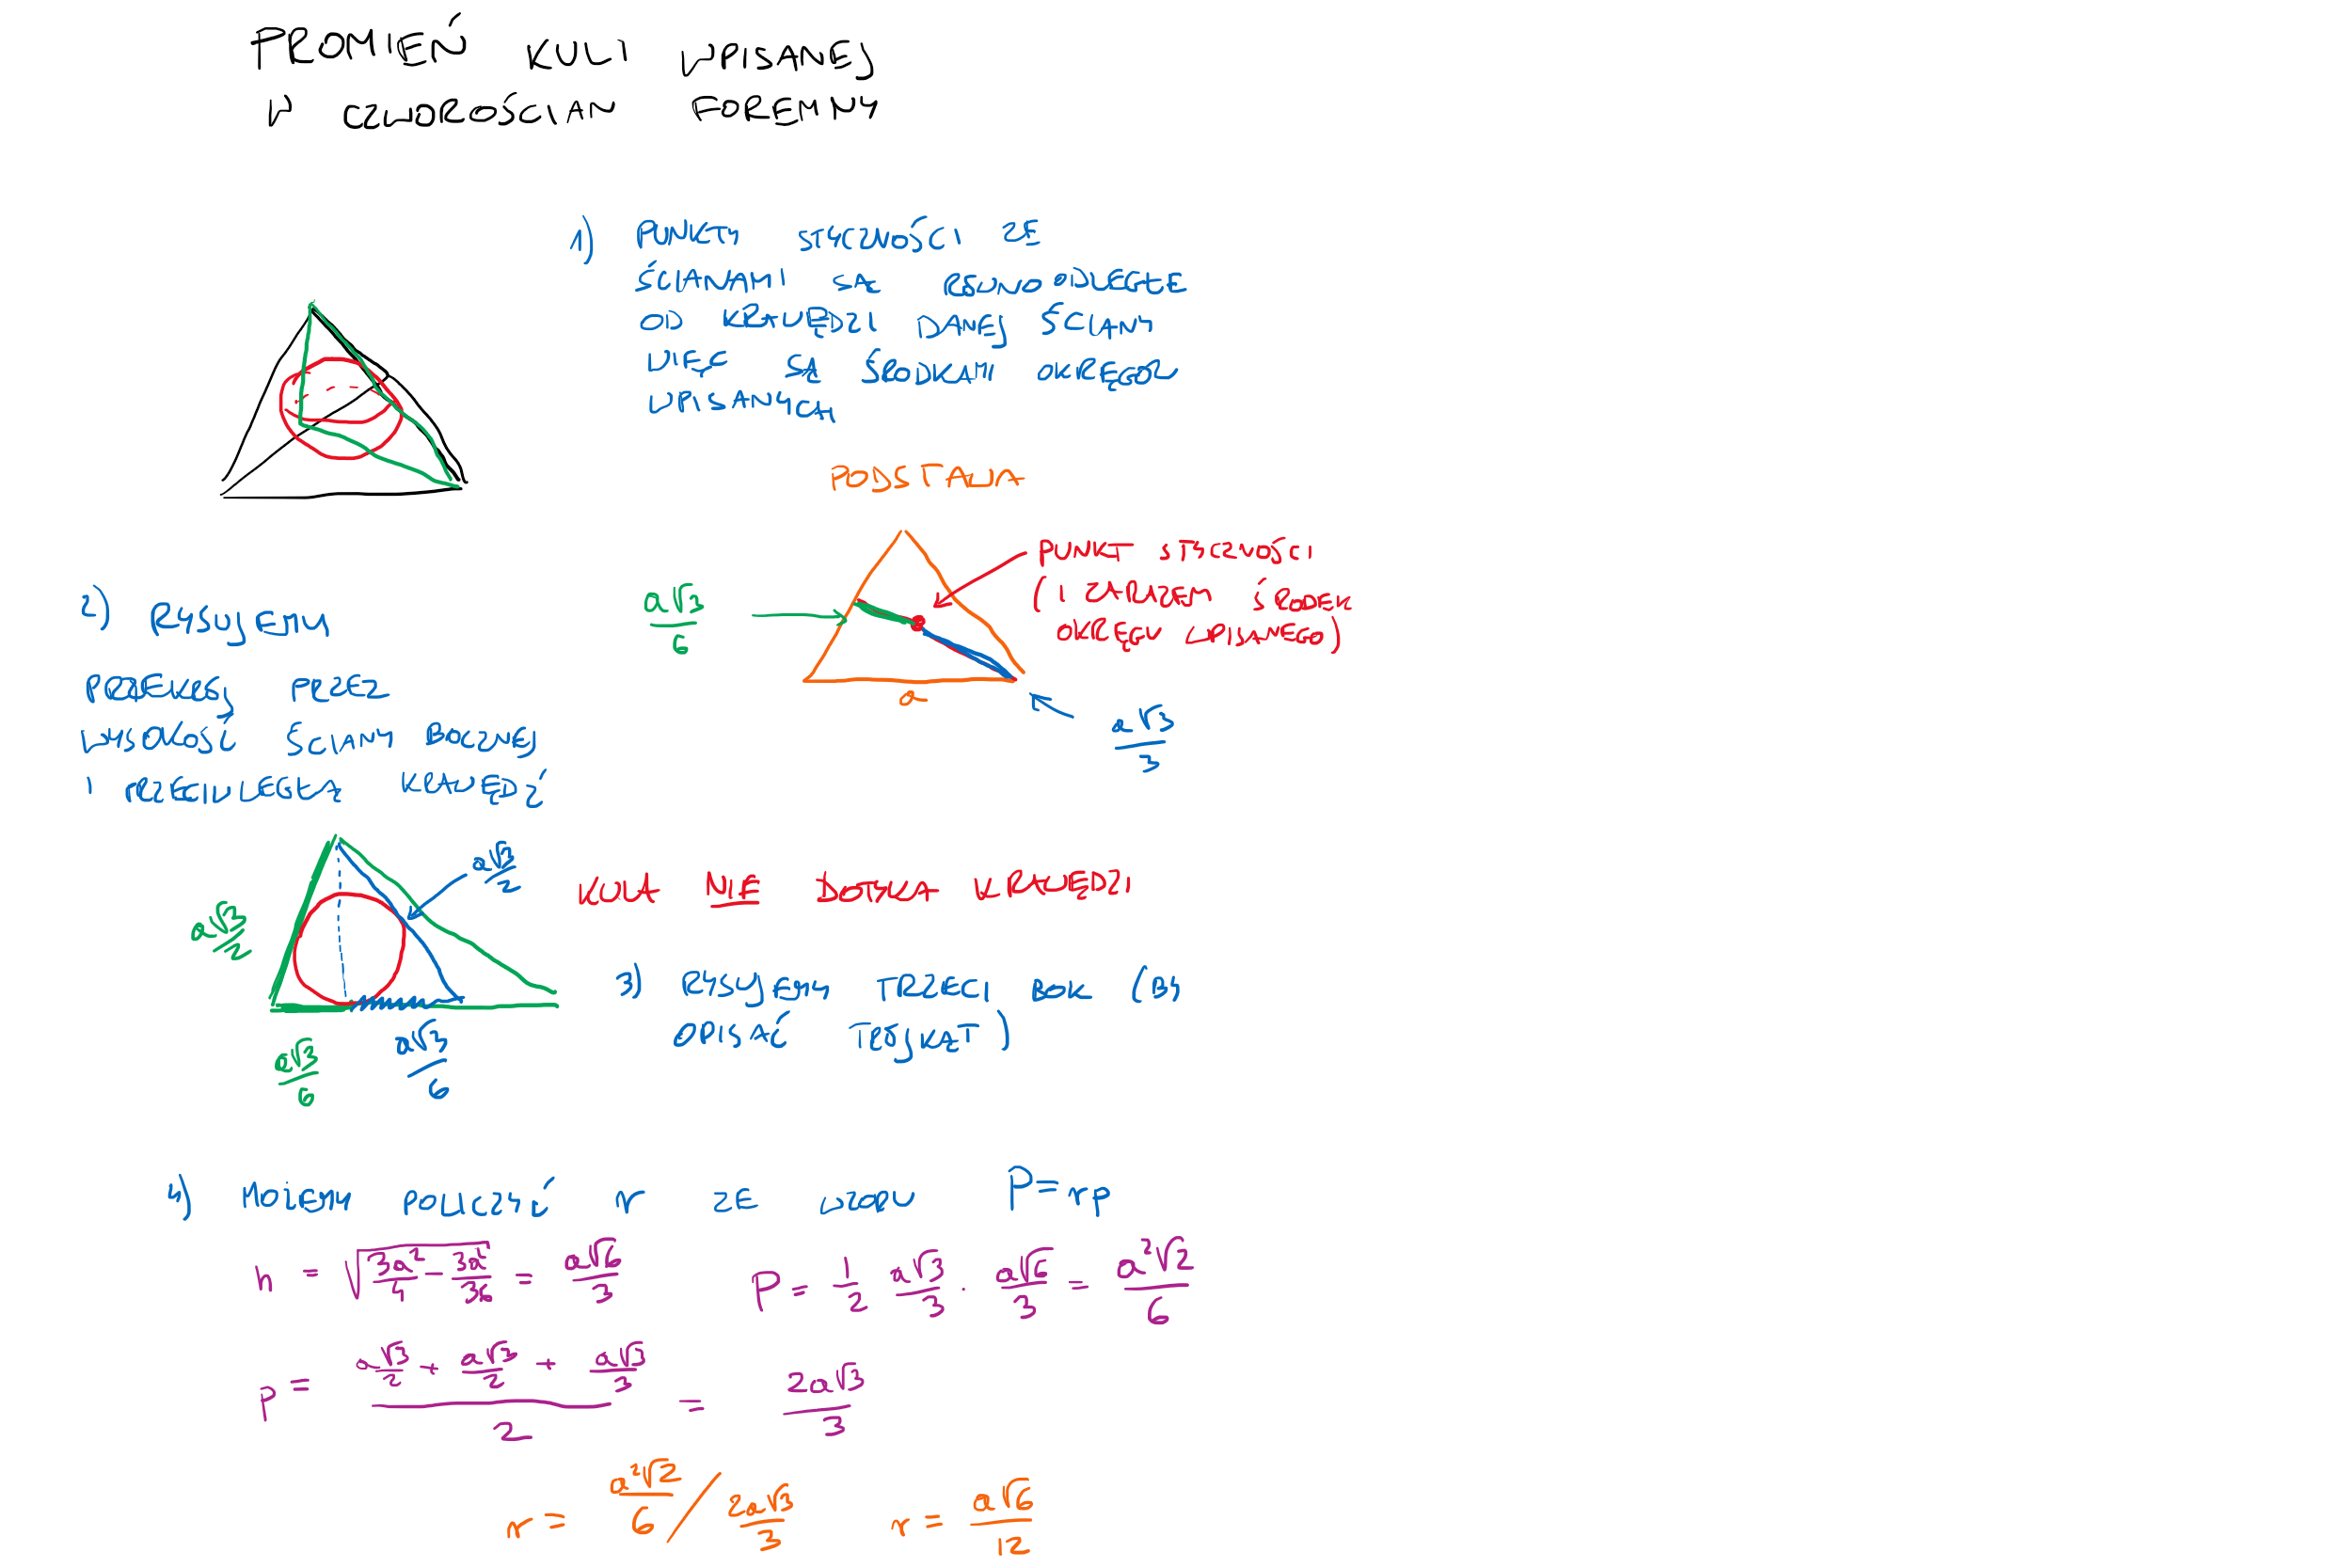 PROMIEŃ KULI WPISANEJ
W CZWOROŚCIAN FOREMNY
1) PUNKTY STYCZNOŚCI ZE
ŚCIANAMI SĄ RÓWNOODLEGŁE
OD KRAWĘDZI DANEJ ŚCIANY
WIĘC SĄ ŚRODKAMI OKRĘGÓW
WPISANYCH
PODSTAWA
PUNKT STYCZNOŚCI
(I ZARAZEM ŚRODEK
OKRĘGU WPISANEGO)
a√3/6
a
a√3/3
2) RYSUJEMY
PRZEKRÓJ PRZEZ
WYSOKOŚĆ ŚCIANY BOCZNEJ
I PRZECIWLEGŁĄ KRAWĘDŹ
a√3/2
a√3/2
a√3/6
a√3/6
KULA NIE DOTYKA KRAWĘDZI
3) RYSUJEMY TRZECI BOK (BY
OPISAĆ TRÓJKĄT)
4) MOŻEMY POLICZYĆ r ZE WZORU P=rp
h = √(3a²/4 - 3a²/36) = a√6/3
P = 1/2 a√3/3 · a√6/3 = a²√2/6
p = (a√3/2 + a√3/2 + a√3/3)/2 = 2a√3/3
r = a²√2/6 / 2a√3/3
r = a√6/12